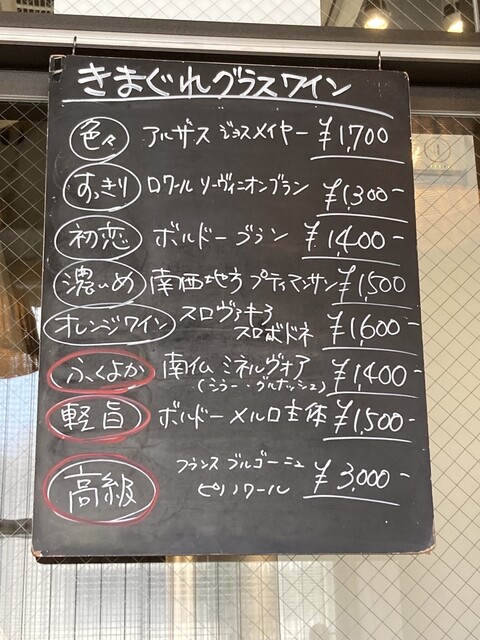 きまぐれグラスワイン
色々 アルザス ジョスメイヤー ¥1,700
すっきり ロワール ソーヴィニオンブラン ¥1,300-
初恋 ボルドー ブラン ¥1,400-
濃いめ 南西地方 プティマンサン ¥1,500
オレンジワイン スロヴァキア ¥1,600-
スロボドネ
ふくよか 南仏 ミネルヴォア ¥1,400-
(シラー・グルナッシュ)
軽旨 ボルドー メルロ主体 ¥1,500-
高級 フランス ブルゴーニュ ¥3,000-
ピノノワール